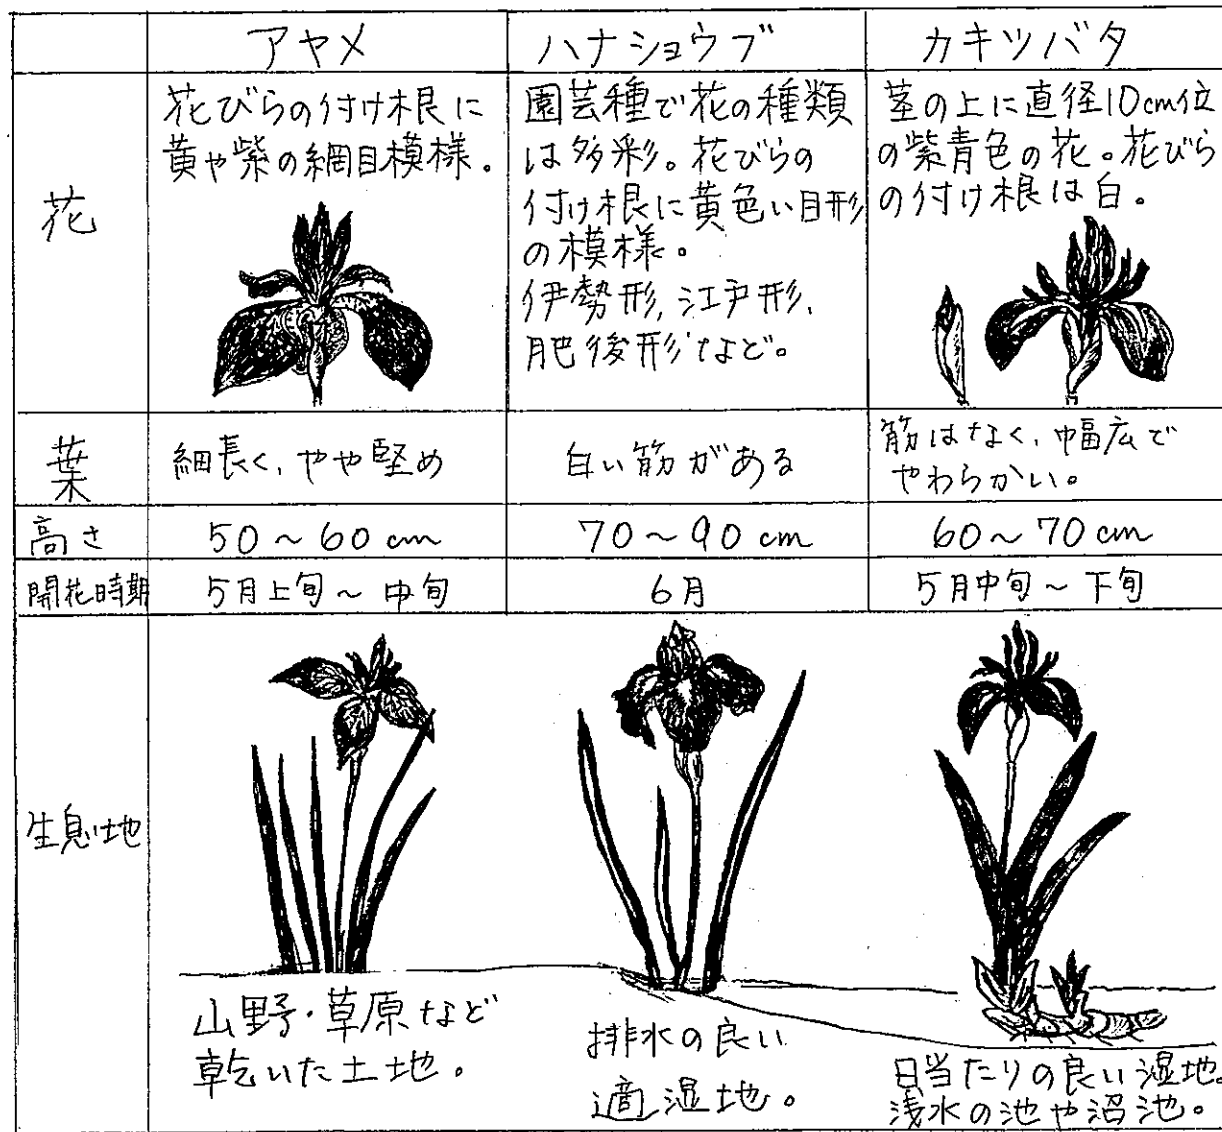 アヤメ
ハナショウブ
カキツバタ
花
花びらの付け根に
黄や紫の網目模様。
園芸種で花の種類
は多彩。花びらの
付け根に黄色い目形
の模様。
伊勢形,江戸形,
肥後形など。
茎の上に直径10cm位
の紫青色の花。花びら
の付け根は白。
葉
細長く、やや堅め
白い筋がある
筋はなく、幅広で
やわらかい。
高さ
50～60cm
70～90cm
60～70cm
開花時期
5月上旬～中旬
6月
5月中旬～下旬
生息地
山野・草原など
乾いた土地。
排水の良い
適湿地。
日当たりの良い湿地。
浅水の池や沼池。